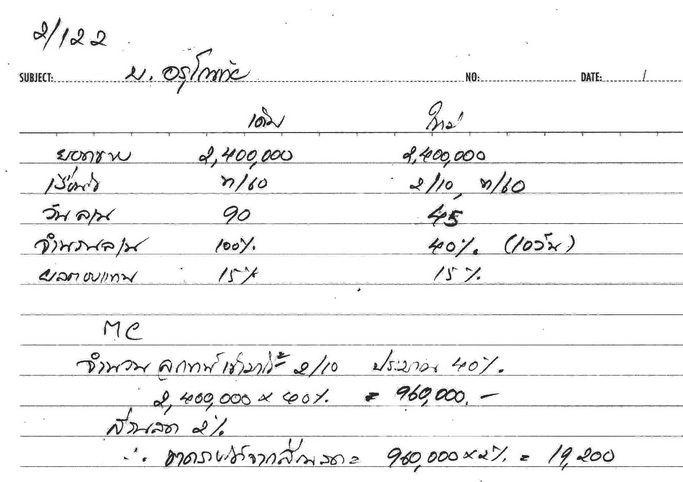 2/122
SUBJECT: บ. อรุโณทัย NO: DATE: /
เดิม ใหม่
ยอดขาย 2,400,000 2,400,000
เงื่อนไข n/60 2/10, n/60
วัน 90 45
จำนวน 100% 40% (10วัน)
ผลตอบแทน 15% 15%
MC
จำนวน ลูกหนี้ 2/10 ประมาณ 40%
2,400,000 x 40% = 960,000.-
ส่วนลด 2%
∴ ขาดรายได้จากส่วนลด = 960,000 x 2% = 19,200